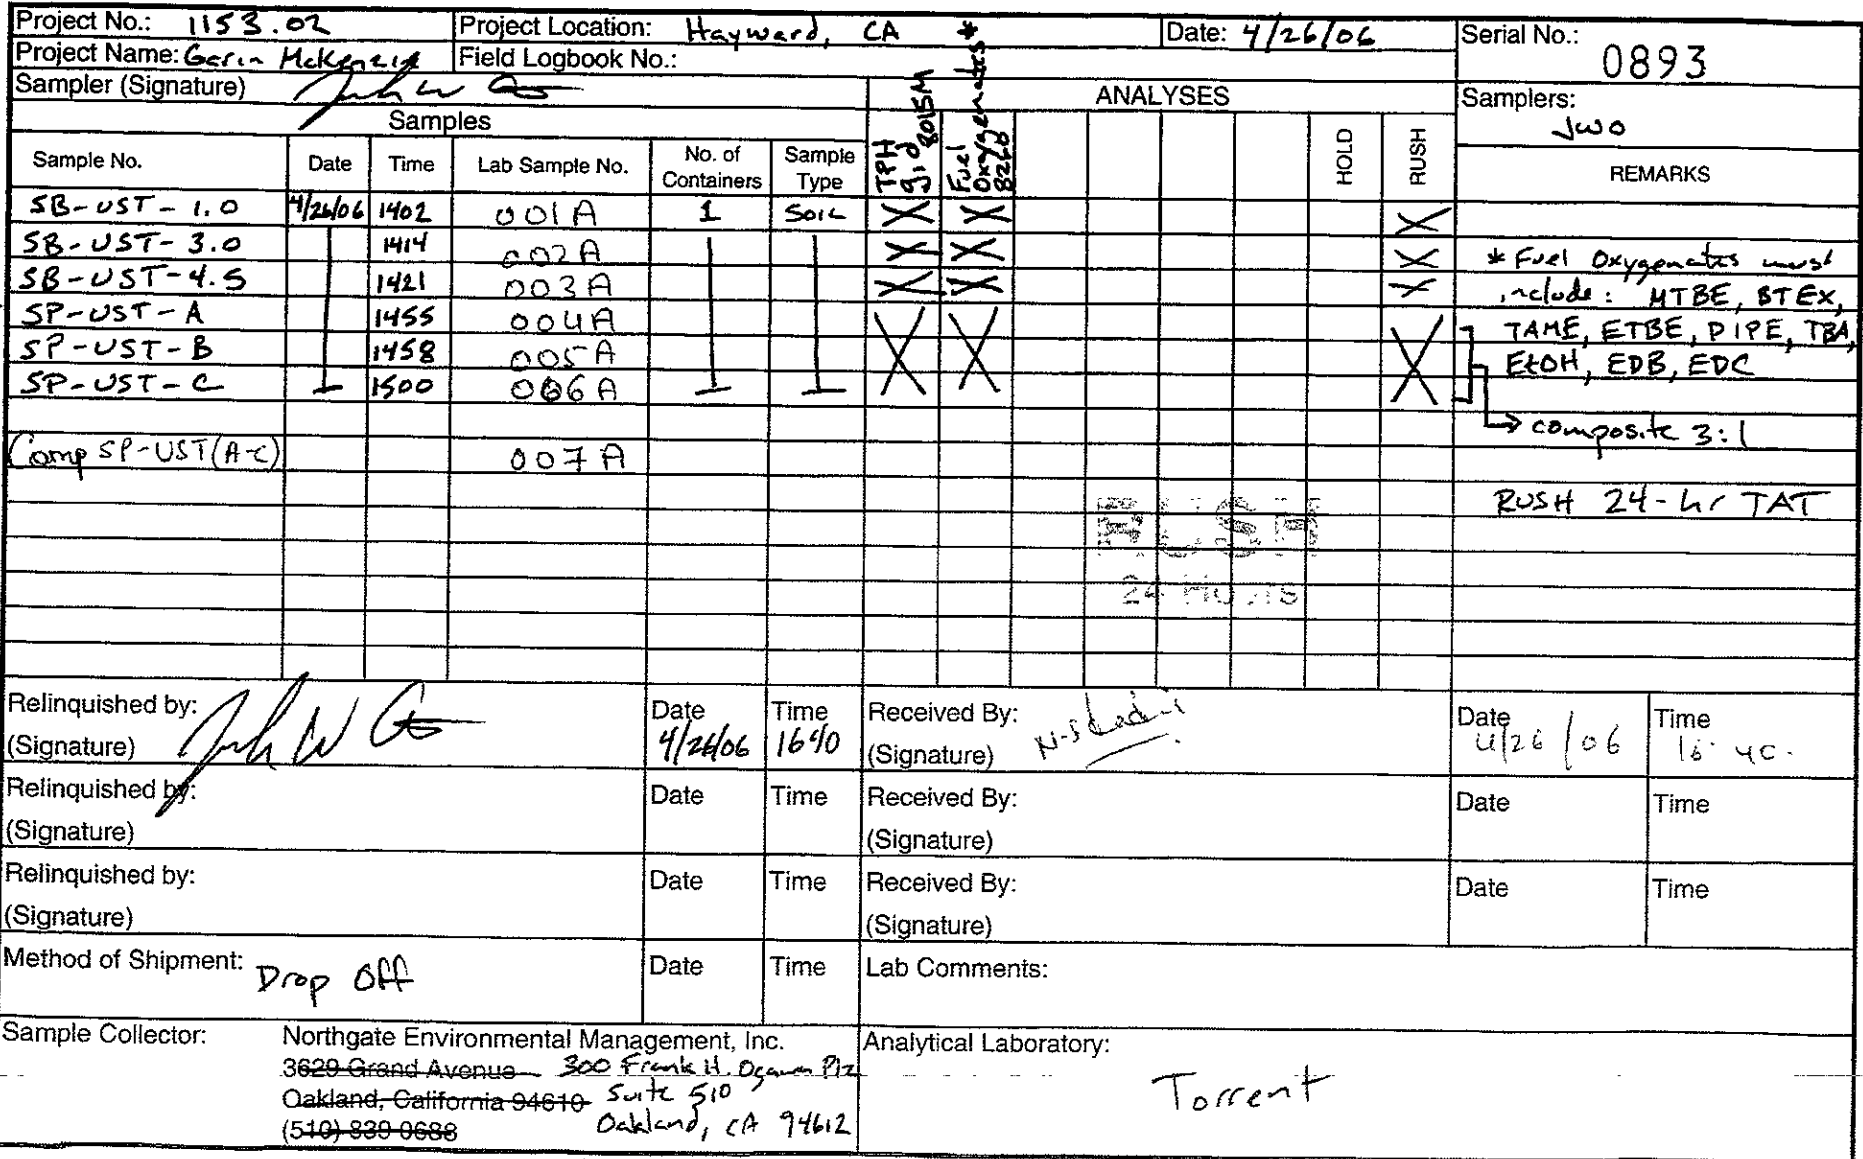 Project No.: 1153.02 Project Location: Hayward, CA Date: 4/26/06 Serial No.: 0893
Project Name: Garin McKenzie Field Logbook No.:
Sampler (Signature) ANALYSES Samplers: JWO
Samples
Sample No. Date Time Lab Sample No. No. of Containers Sample Type TPH g,d 8015M Fuel Oxygenates* 8260 HOLD RUSH REMARKS
SB-UST-1.0 4/26/06 1402 001A 1 SOIL X X X
SB-UST-3.0 1414 002A X X X * Fuel Oxygenates must
SB-UST-4.5 1421 003A X X X include: MTBE, BTEX,
SP-UST-A 1455 004A X X X TAME, ETBE, DIPE, TBA,
SP-UST-B 1458 005A EtOH, EDB, EDC
SP-UST-C 1500 006A
→ composite 3:1
Comp SP-UST(A-C) 007A
RUSH 24-hr TAT
RUSH
24 Hours
Relinquished by: Date Time Received By: Date Time
(Signature) 4/26/06 1640 (Signature) 4/26/06 16 40
Relinquished by: Date Time Received By: Date Time
(Signature) (Signature)
Relinquished by: Date Time Received By: Date Time
(Signature) (Signature)
Method of Shipment: Drop Off Date Time Lab Comments:
Sample Collector: Northgate Environmental Management, Inc. Analytical Laboratory:
3629 Grand Avenue 300 Frank H. Ogawa Plz
Oakland, California 94610 Suite 510 Torrent
(510) 839-0688 Oakland, CA 94612